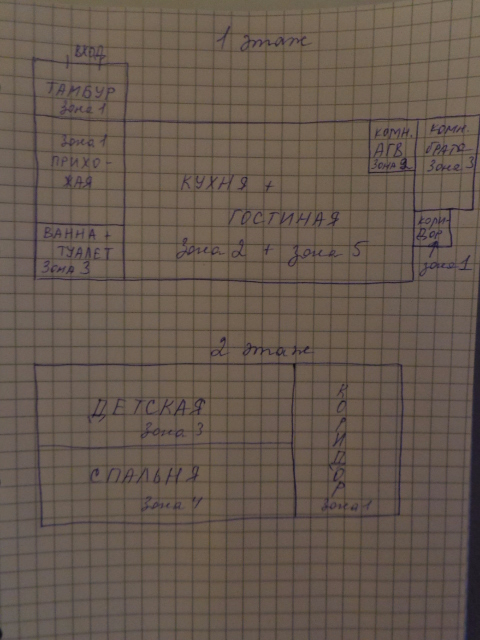 1 этаж
ВХОД
ТАМБУР
Зона 1
Зона 1
ПРИХО-
ЖАЯ
ВАННА +
ТУАЛЕТ
Зона 3
КУХНЯ +
ГОСТИНАЯ
Зона 2 + Зона 5
КОМН.
АГВ
Зона 2
КОМН.
БРАТА
Зона 3
КОРИ-
ДОР
Зона 1
2 этаж
ДЕТСКАЯ
Зона 3
СПАЛЬНЯ
Зона 4
КОРИДОР
Зона 1